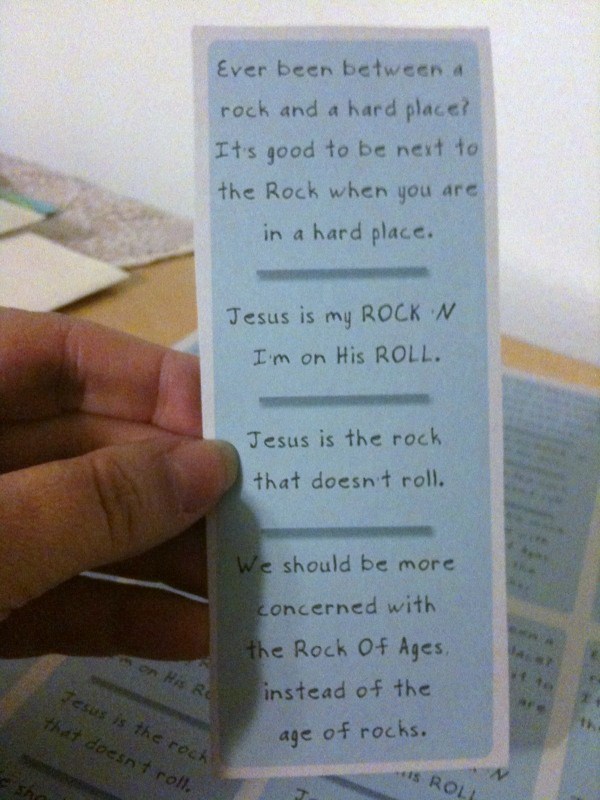 Ever been between a
rock and a hard place?
It's good to be next to
the Rock when you are
in a hard place.
Jesus is my ROCK 'N
I'm on His ROLL.
Jesus is the rock
that doesn't roll.
We should be more
concerned with
the Rock Of Ages,
instead of the
age of rocks.
I'm on His
Jesus is the rock
that doesn't roll.
'N
His ROLL.